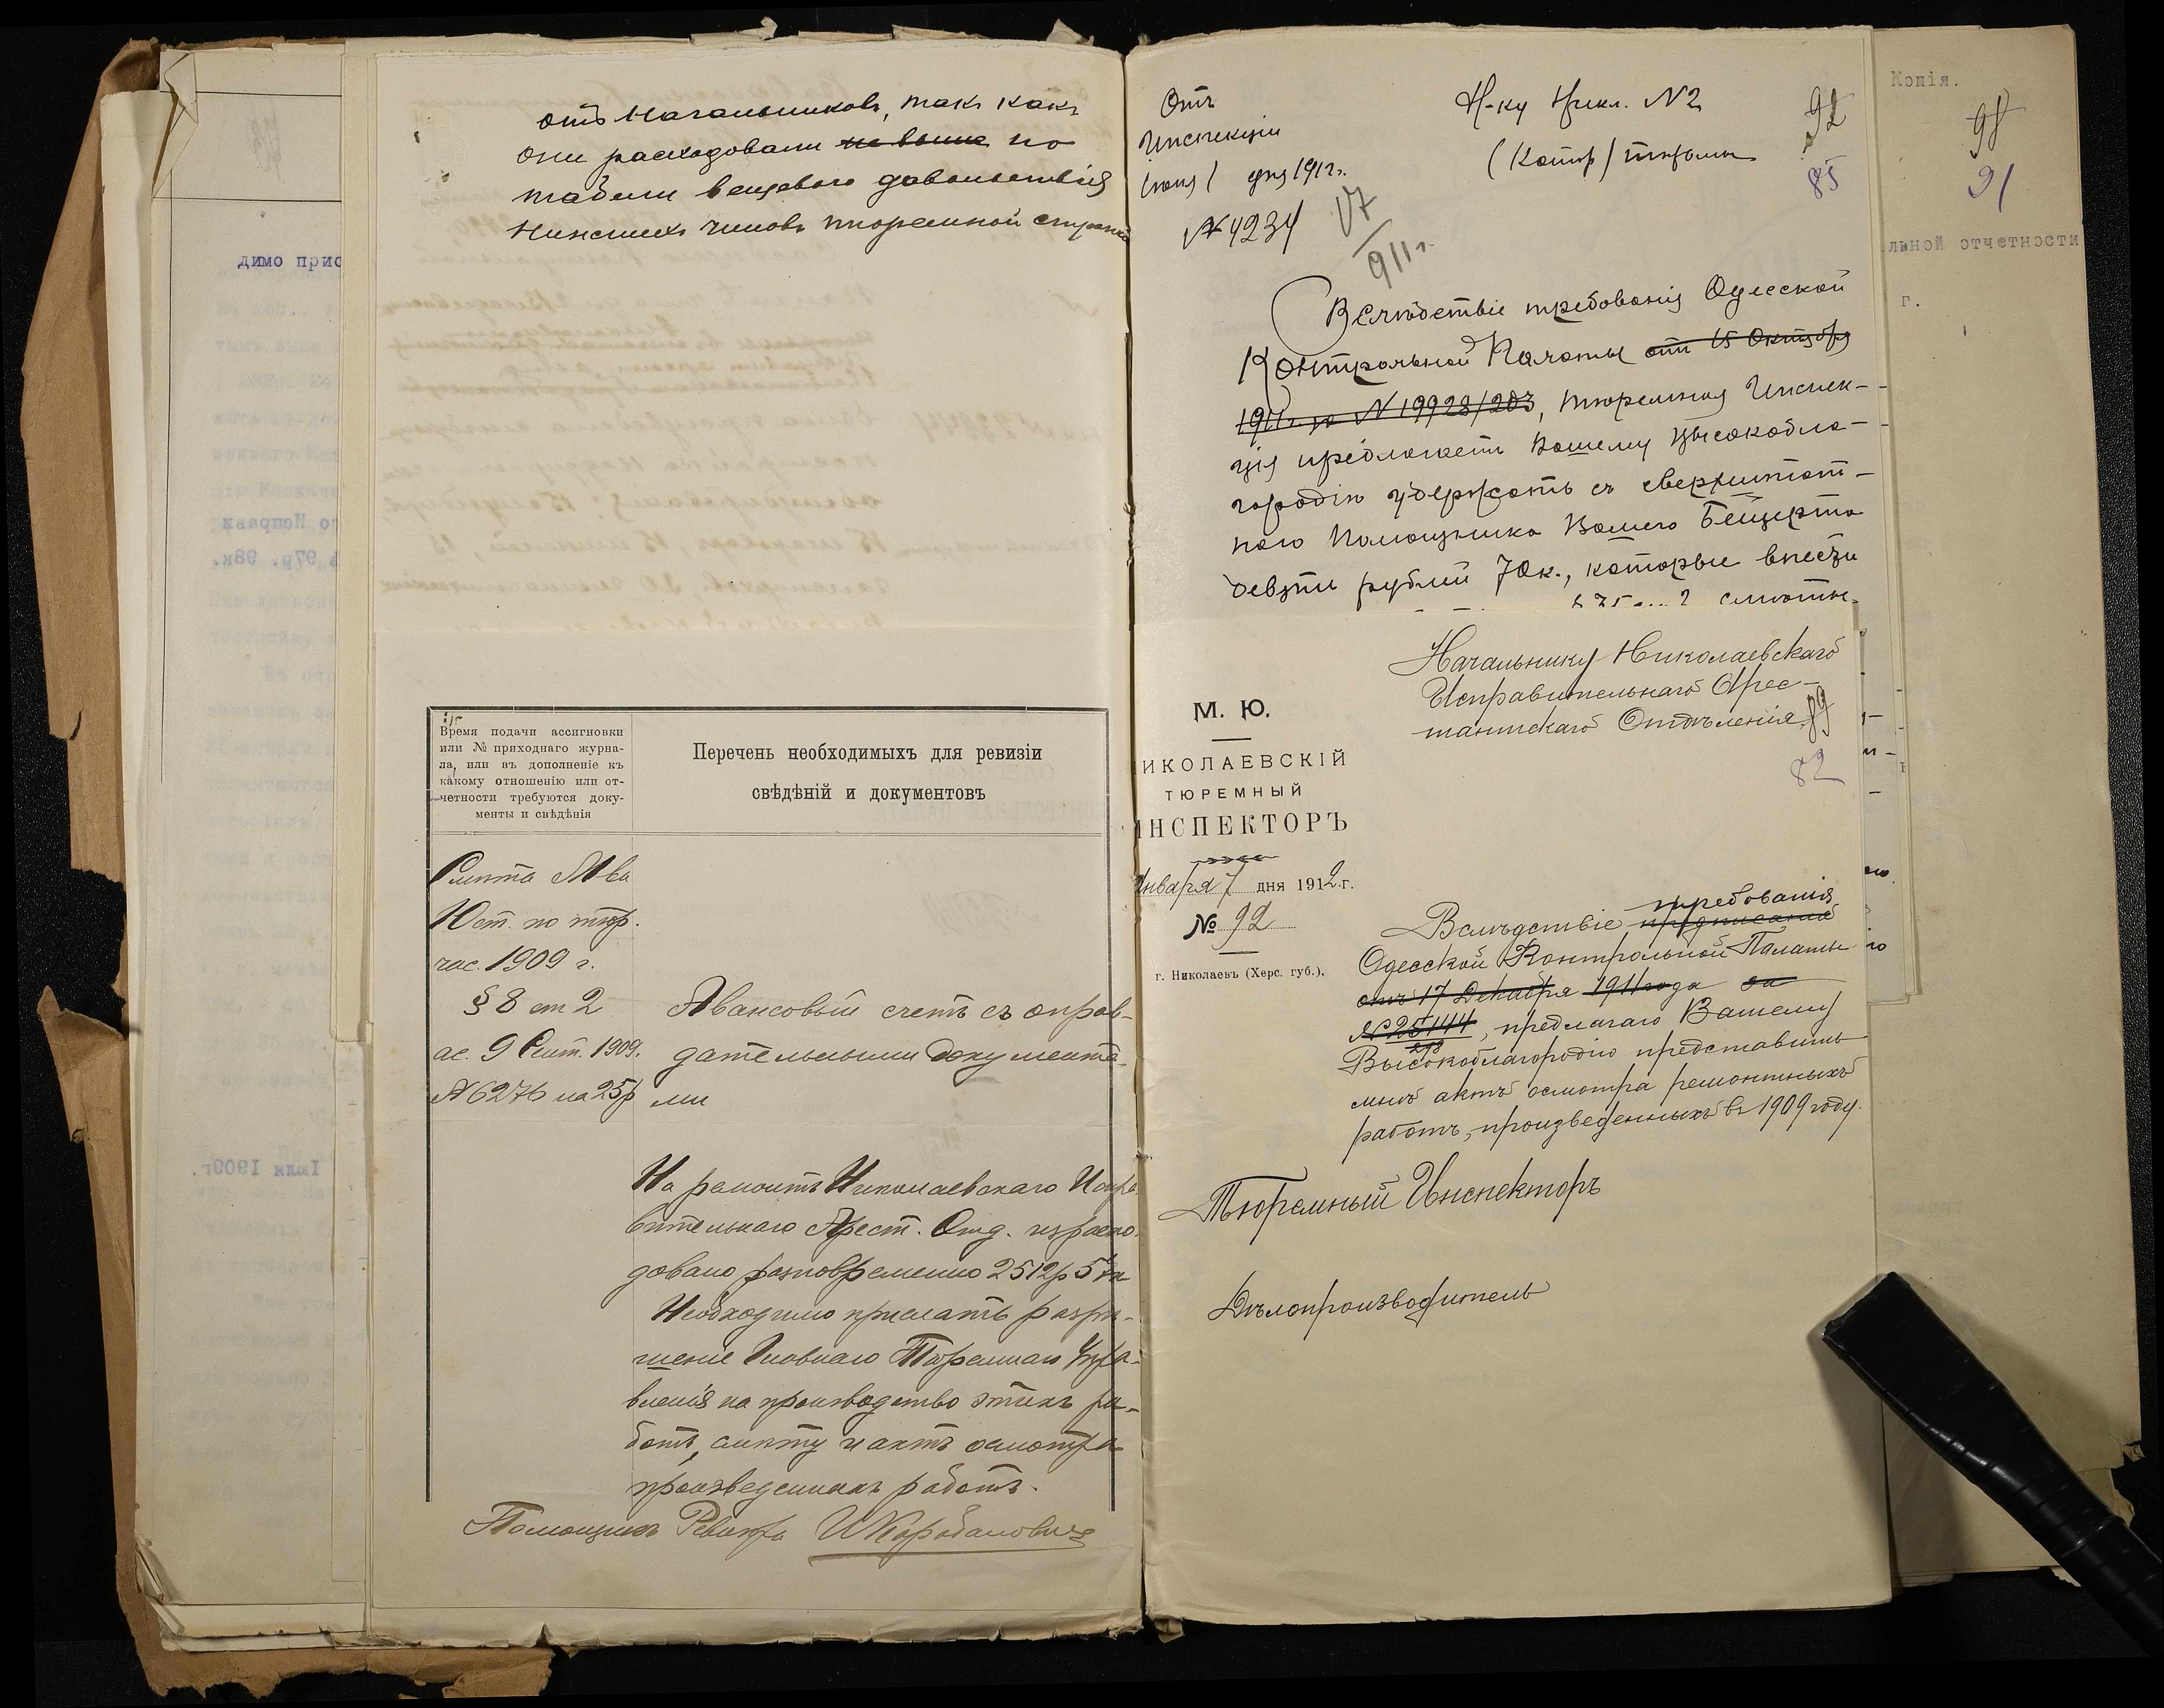 димо прис
отъ Начальниковъ, такъ какъ
они расходовали не выше по
табели вещевого довольствія
Нижнихъ чиновъ тюремной стражи
Время подачи ассигновки
или № приходнаго журна-
ла, или въ дополненіе къ
какому отношенію или от-
четности требуются доку-
менты и свѣдѣнія
Перечень необходимыхъ для ревизіи
свѣдѣній и документовъ
Смѣта М-ва
Юст. по тюр.
час. 1909 г.
§ 8 ст 2
ас. 9 Сент. 1909.
№ 6276 на 25р
Авансовый счетъ съ оправ-
дательными документа-
ми
На ремонтъ Николаевскаго Испра
вительнаго Арест. Отд. израсхо
довано разновременно 2512р 57к
Необходимо прислать разрѣ-
шеніе Главнаго Тюремнаго Упра-
вленія на производство этихъ ра-
ботъ, смѣту и актъ осмотра
произведенныхъ работъ.
Помощникъ Ревизора
Отъ
Инспекціи
дня 1912 г.
№ 4234
17
911 г.
Н-ку Никл. № 2
(Катор) тюрьмы
92
85
Вслѣдствіе требованія Одесской
Контрольной Палаты отъ 15 Октября
1911 г. за № 19928/203, Тюремная Инспек-
ція предлагаетъ Вашему Высокобла-
городію удержать съ сверхштат-
наго Помощника Вашего
девять рублей 70к., которые внести
смѣты
М. Ю.
ИКОЛАЕВСКІЙ
ТЮРЕМНЫЙ
НСПЕКТОРЪ
Января 7 дня 1912 г.
№ 92
г. Николаевъ (Херс. губ.).
Начальнику Николаевскаго
Исправительнаго Арес-
тантскаго Отдѣленія.
89
82
требованія
Вслѣдствіе предписанія
Одесской Контрольной Палаты
отъ 17 Декабря 1911 года за
№ 25144
298
, предлагаю Вашему
Высокоблагородію представить
мнѣ актъ осмотра ремонтныхъ
работъ, произведенныхъ въ 1909 году.
Тюремный Инспекторъ
Дѣлопроизводитель
Копія.
98
91
льной отчетности
г.